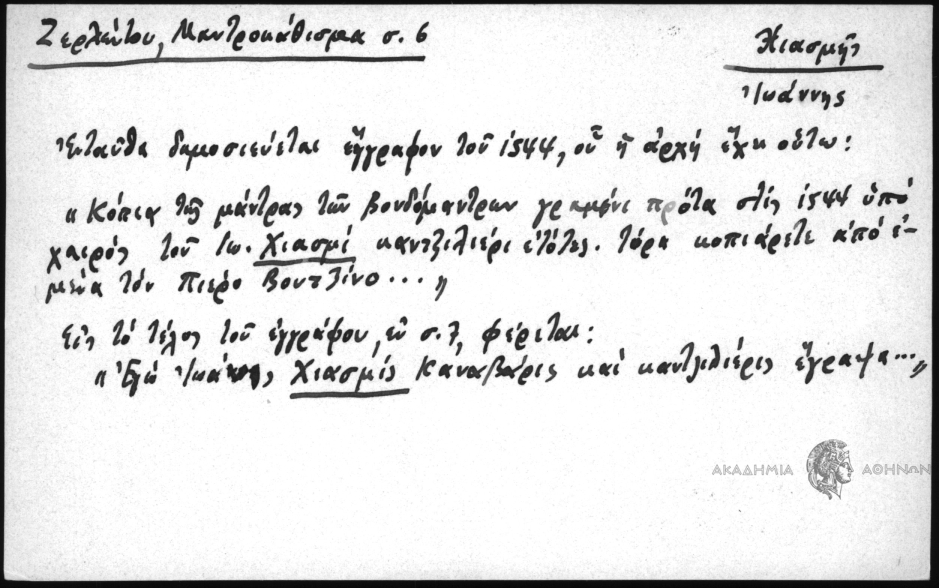 Ζερλέντου, Μαντροκάθισμα σ. 6
Χιασμῆς
Ἰωάννης
Ἐνταῦθα δημοσιεύεται ἔγγραφον τοῦ 1544, οὗ ἡ ἀρχή ἔχει οὕτω:
"Κόπια τῆς μάντρας τῶν βουδόμαντρων γραμένι πρότα στίς 1544 ὑπό
χαιρός τοῦ Ἰω. Χιασμί καντζιλιέρι ετότες. τόρα κοπιάρετε ἀπό ἐ-
μένα τόν Πιέρο Βουτζίνο..."
Εἰς τό τέλος τοῦ ἐγγράφου, ἐν σ. 7, φέρεται:
"Ἐγώ Ἰωάνης Χιασμίς Καναβάρις καί καντζιλιέρις ἔγραψα..."
ΑΚΑΔΗΜΙΑ ΑΘΗΝΩΝ